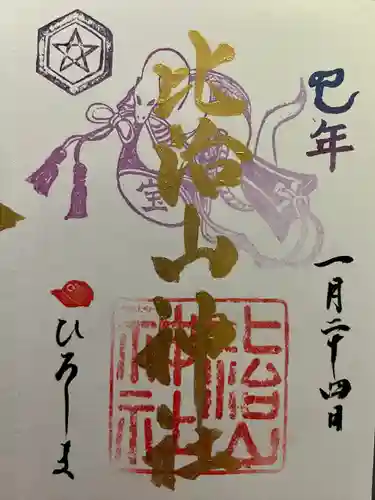 巳年
一月二十四日
比治山神社
宝
比治山神社
ひろしま